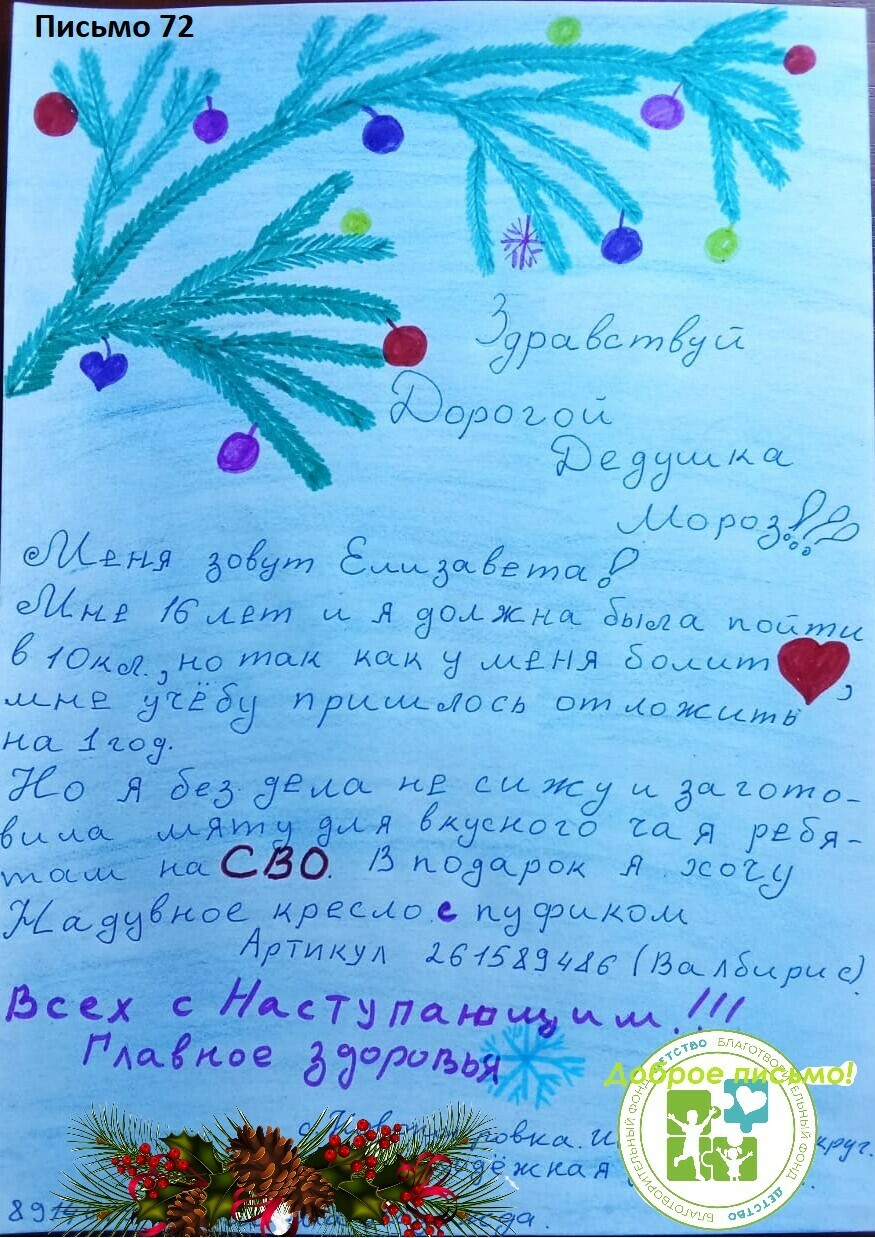 Письмо 72
Здравствуй
Дорогой
Дедушка
Мороз!!!
Меня зовут Елизавета!
Мне 16 лет и я должна была пойти
в 10кл., но так как у меня болит ,
мне учёбу пришлось отложить
на 1 год.
Но я без дела не сижу и загото-
вила мяту для вкусного чая ребя-
там на СВО. В подарок я хочу
Надувное кресло с пуфиком
Артикул 261589486 (Валбирис)
Всех с Наступающим!!!
Главное здоровья
Доброе письмо!
БЛАГОТВОРИТЕЛЬНЫЙ ФОНД ДЕТСТВО БЛАГОТВОРИТЕЛЬНЫЙ ФОНД ДЕТСТВО